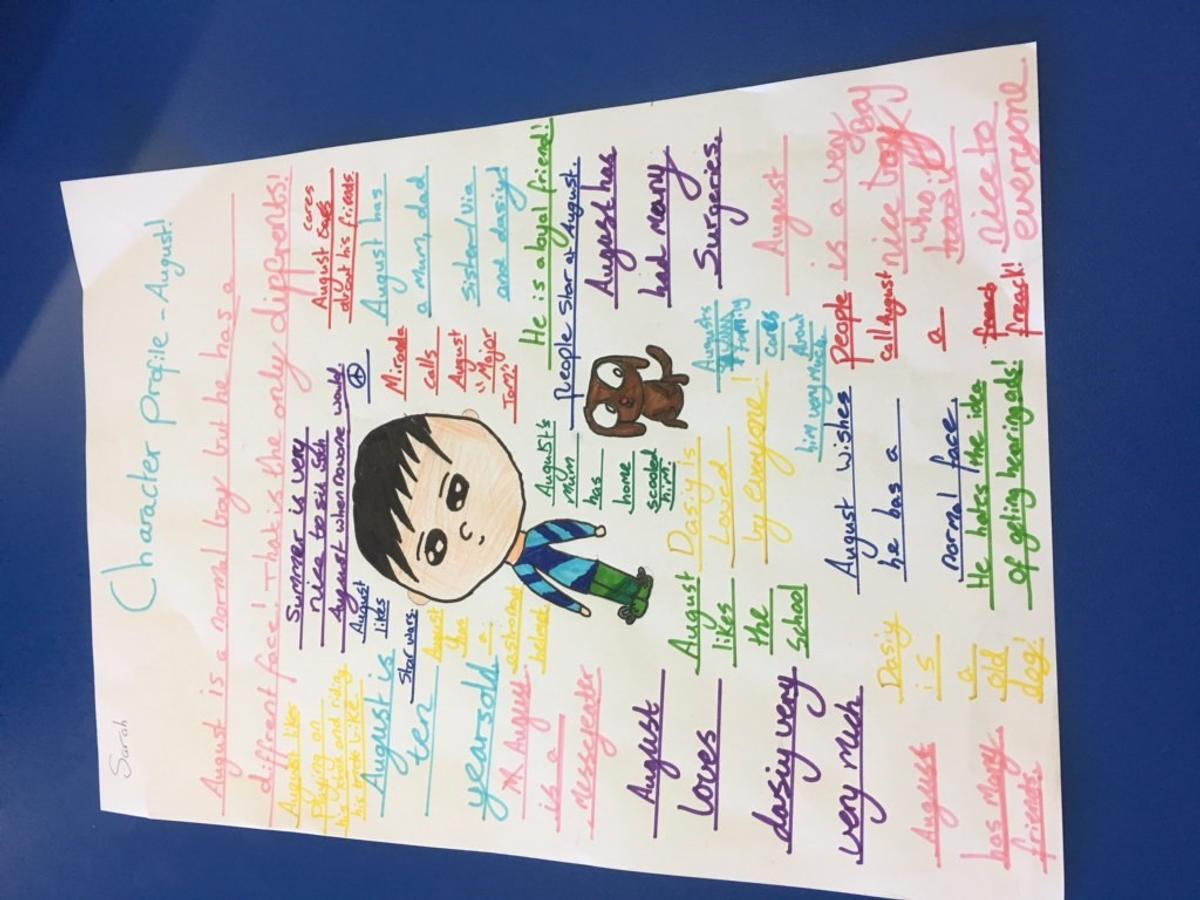 Sarah
Character Profile - August!
August is a normal boy but he has a
diffrent face! That is the only diffrents!
August likes
Playing on
his xbox and riding
his
Summer is very
nice to
August when nowone would.
August cares
about his friends.
August is
ten
yearsold
August
likes
Star wars.
Miranda
calls
August
"Major
Tom"
August has
a Mum, dad
Sister/Via
and dasiy!
August
a
helmet
August
is a
Messyeater
August's
Mum
has
home
scooled
him.
He is a loyal friend!
People Star at August.
August has
had many
Surgeries.
August
loves
dasiy very
very much
August
likes
the
School
Dasiy is
Loved
by everyone!
August's
family
cares
About
him very much.
August
is a very
nice boy
who is
nice to
everyone.
August wishes
he has a
normal face.
People
call August
a
freack!
Dasiy
is
a
old
dog!
He hates the idea
of geting hearing ads!
August
has many
friends.